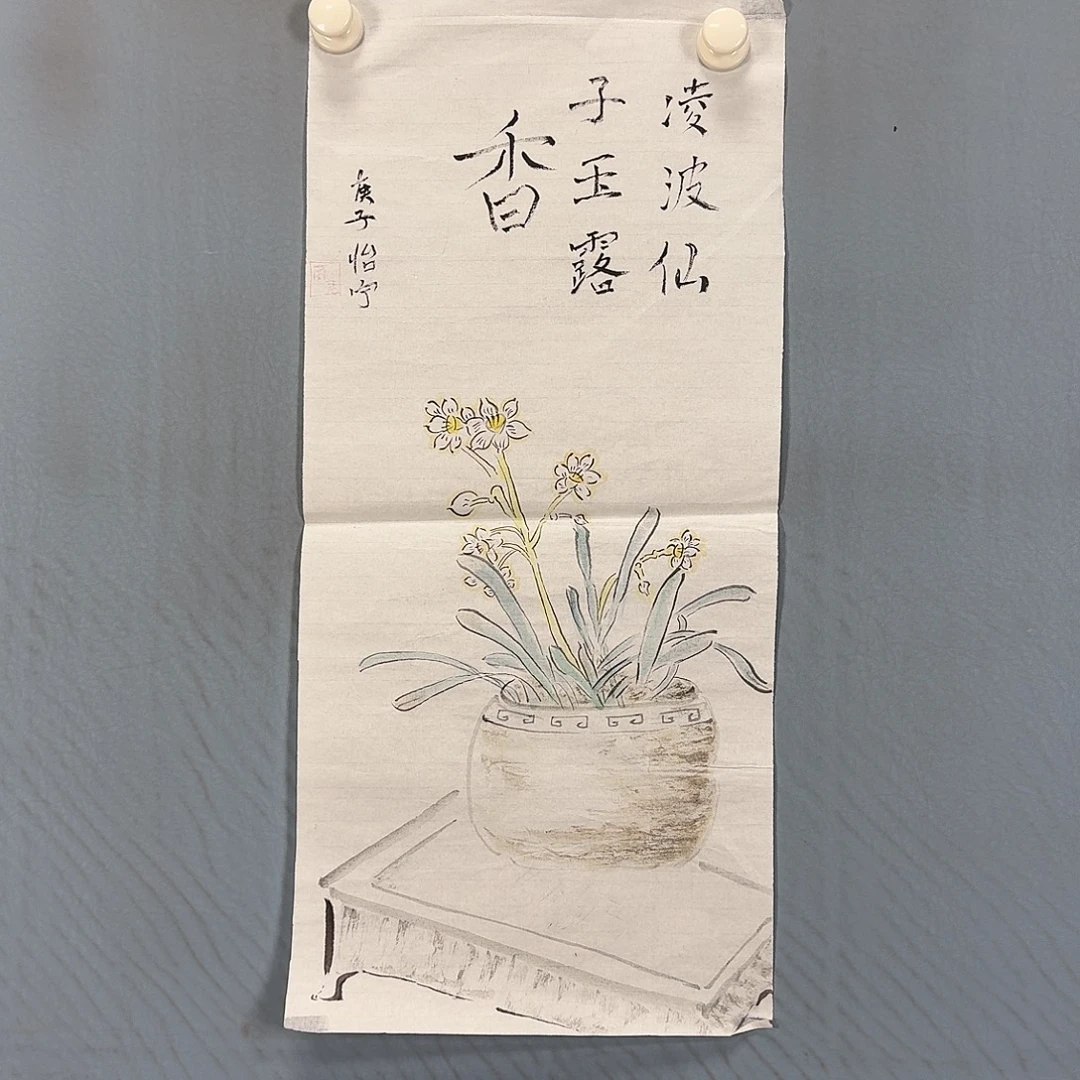 凌波仙
子玉露
香
庚子怡宁